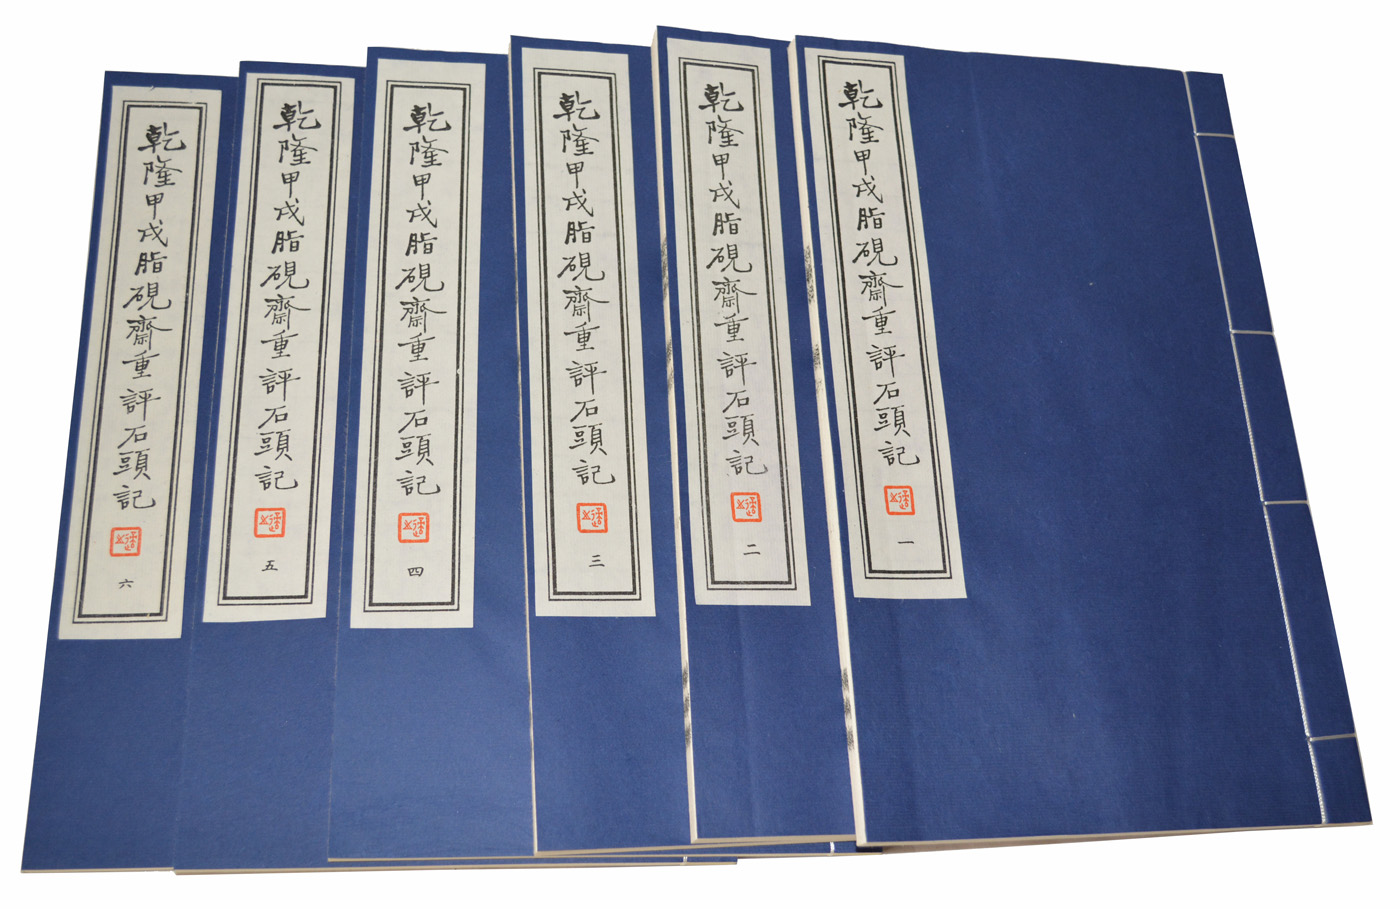 乾隆甲戌脂硯齋重評石頭記
一
乾隆甲戌脂硯齋重評石頭記
二
乾隆甲戌脂硯齋重評石頭記
三
乾隆甲戌脂硯齋重評石頭記
四
乾隆甲戌脂硯齋重評石頭記
五
乾隆甲戌脂硯齋重評石頭記
六